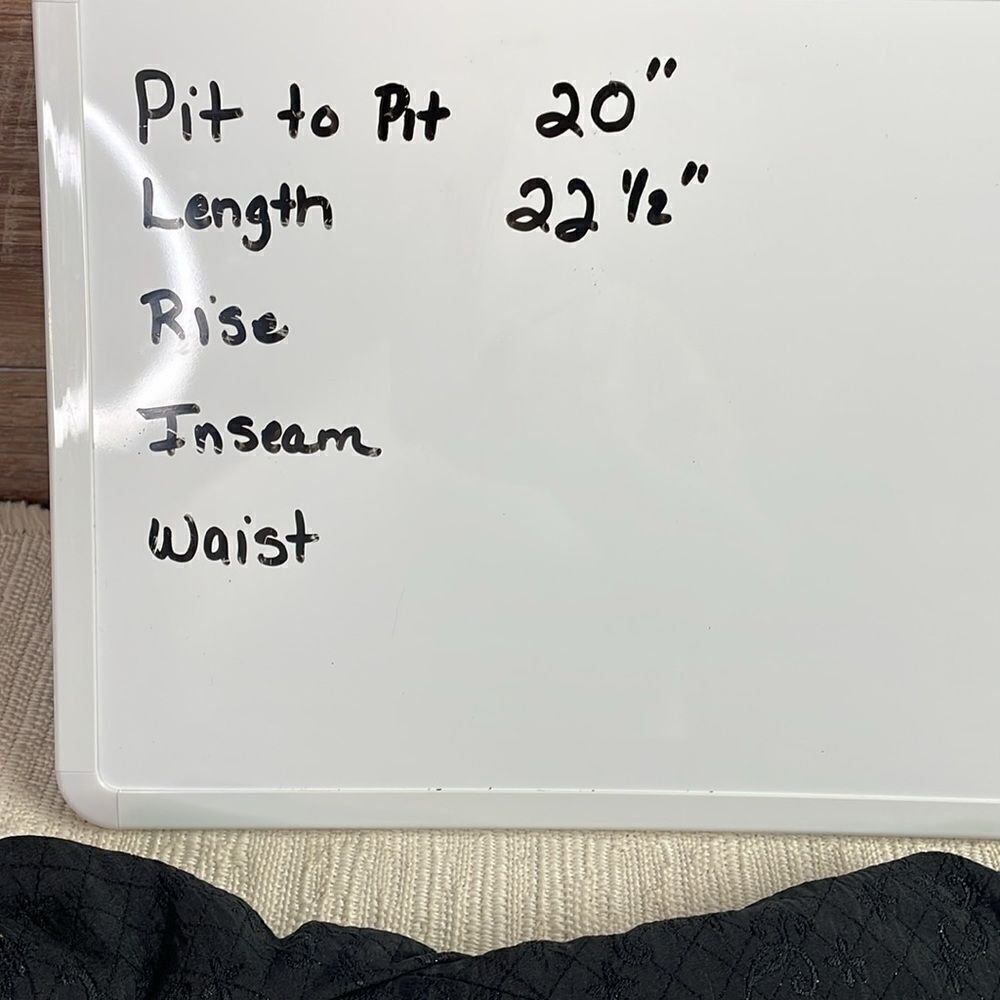 Pit to Pit 20"
Length 22 ½"
Rise
Inseam
Waist